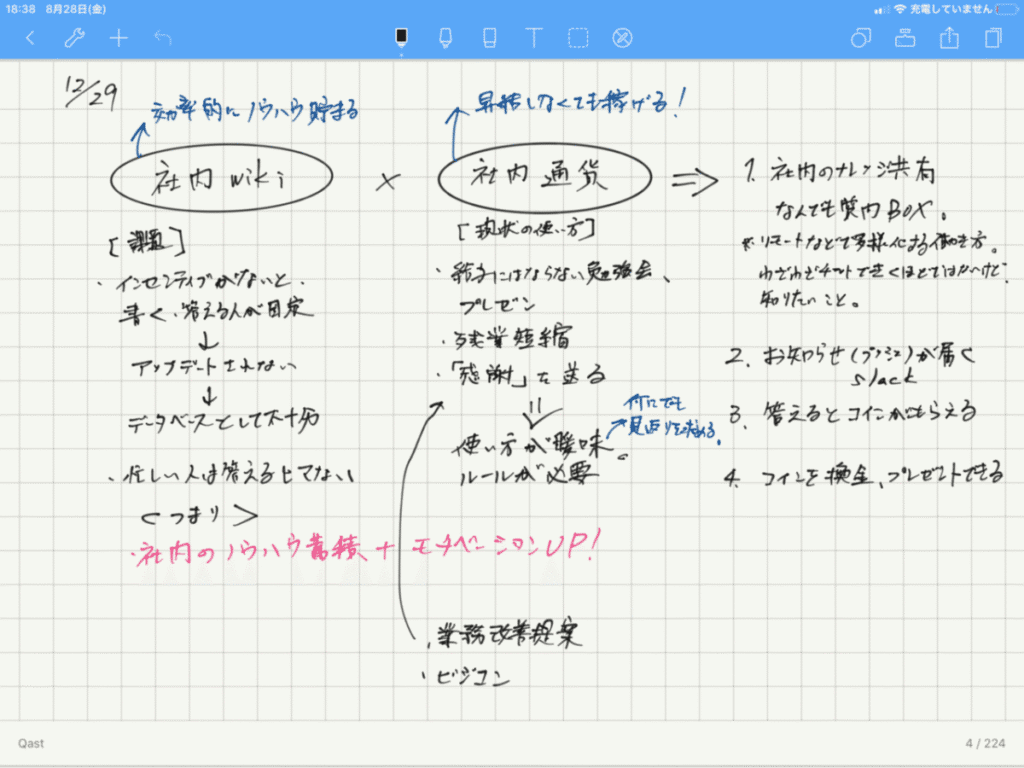 18:38 8月28日(金)
充電していません
12/29
効率的にノウハウ貯まる
昇格しなくても稼げる!
社内wiki
×
社内通貨
[課題]
・インセンティブがないと、
書く、答える人が固定
アップデートされない
データベースとして不十分
・忙しい人は答えるヒマない
<つまり>
・社内のノウハウ蓄積 + モチベーションUP!
[現状の使い方]
・給与にはならない勉強会、
プレゼン
・残業短縮
・「感謝」を送る
使い方が曖昧。
ルールが必要
何にでも
見返りを求める。
・業務改善提案
・ビジコン
1. 社内のナレッジ共有
なんでも質問BOX。
※リモートなどで多様化する働き方。
わざわざチャットできくほどではないけど、
知りたいこと。
2. お知らせ(プッシュ)が届く
slack
3. 答えるとコインがもらえる
4. コインを換金、プレゼントできる
Qast
4 / 224